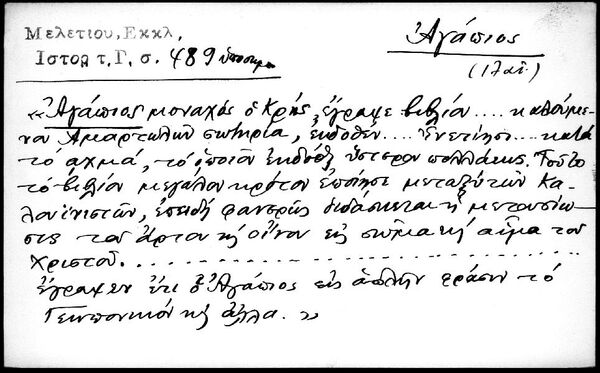 Μελετίου, Εκκλ,
Ιστορ τ, Γ, σ. 489 ὑποσημ.
Ἀγάπιος
(17 αἰ.)
«Ἀγάπιος μοναχός ὁ Κρής, ἔγραψε βιβλίον .... καλούμε-
νον Ἁμαρτωλῶν σωτηρία, ἐκδοθέν .... Ἐνετίησι .... κατά
το αχμά, τό ὁποῖον ἐκδόθη ὕστερον πολλάκις. Τοῦτο
τό βιβλίον μεγάλον κρότον ἐποίησε μεταξύ τῶν Κα-
λουϊνιστῶν, ἐπειδή φανερῶς διδάσκεται ἡ μετουσίω-
σις του ἄρτου κ̀ οἴνου εἰς σῶμα κ̀ αἷμα του
Χριστοῦ. . . . . . . . . . . . . . . . . . . .
ἔγραψεν ἔτι ὁ Ἀγάπιος εἰς ἁπλῆν φράσιν τό
Γεωπονικόν κ̀ ἄλλα. »